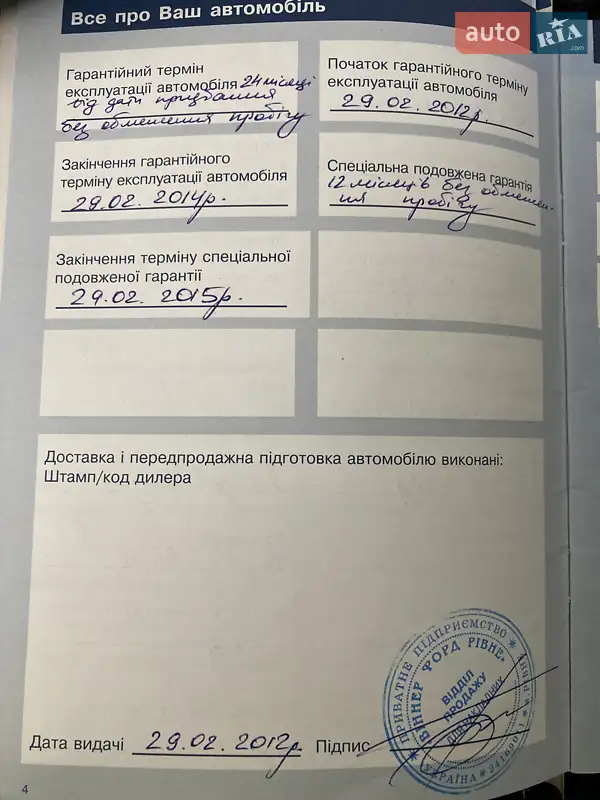 Все про Ваш автомобіль
auto RIA .com
Гарантійний термін
експлуатації автомобіля 24 місяці
від дати придбання
без обмеження пробігу
Початок гарантійного терміну
експлуатації автомобіля
29.02.2012р.
Закінчення гарантійного
терміну експлуатації автомобіля
29.02.2014р.
Спеціальна подовжена гарантія
12 місяців без обмежен-
ня пробігу
Закінчення терміну спеціальної
подовженої гарантії
29.02.2015р.
Доставка і передпродажна підготовка автомобілю виконані:
Штамп/код дилера
ПРИВАТНЕ ПІДПРИЄМСТВО
ВІННЕР ФОРД РІВНЕ
ВІДДІЛ
ПРОДАЖУ
УКРАЇНА
Дата видачі 29.02.2012р. Підпис
4